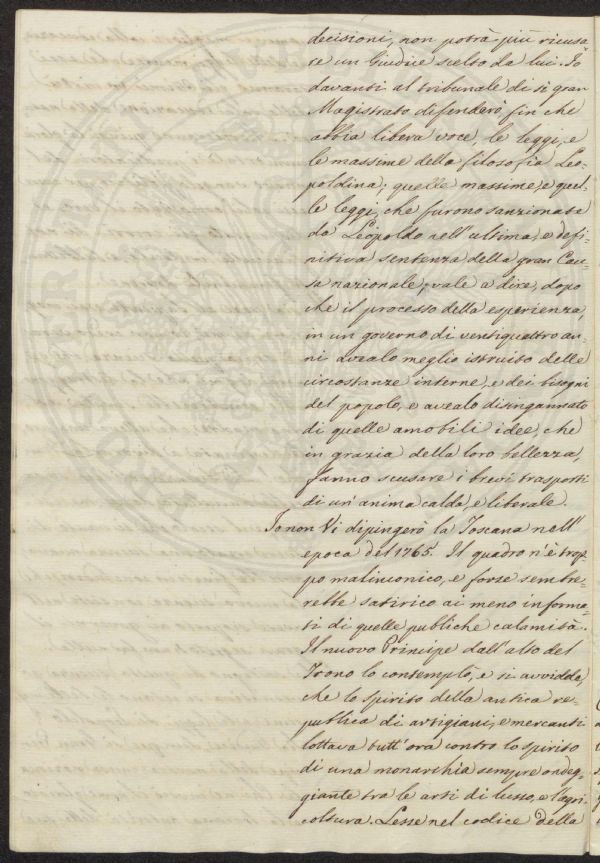 decisioni, non potrà più ricusa-
re un Giudice scelto da lui. Io
davanti al tribunale di sì gran
Magistrato difenderò fin che
abbia libera voce, le leggi, e
le massime della filosofia Leo-
poldina; quelle massime, e quel-
le leggi, che furono sanzionate
da Leopoldo nell'ultima, e defi-
nitiva sentenza della gran Cau-
sa nazionale, vale a dire, dopo
che il processo della esperienza,
in un governo di ventiquattro an-
ni avealo meglio istruito delle
circostanze interne, e dei bisogni
del popolo, e avealo disingannato
di quelle amabili idee, che
in grazia della loro bellezza,
fanno scusare i brevi trasporti
di un'anima calda, e liberale.
Io non Vi dipingerò la Toscana nell'
epoca del 1765. Il quadro n'è trop-
po malinconico, e forse sembre-
rebbe satirico ai meno informa-
ti di quelle publiche calamità.
Il nuovo Principe dall'alto del
Trono lo contemplò, e si avvidde,
che lo spirito della antica re-
publica di artigiani, e mercanti
lottava tutt'ora contro lo spirito
di una monarchia sempre ondeg-
giante tra le arti di lusso, e l'agri-
coltura. Lesse nel codice della